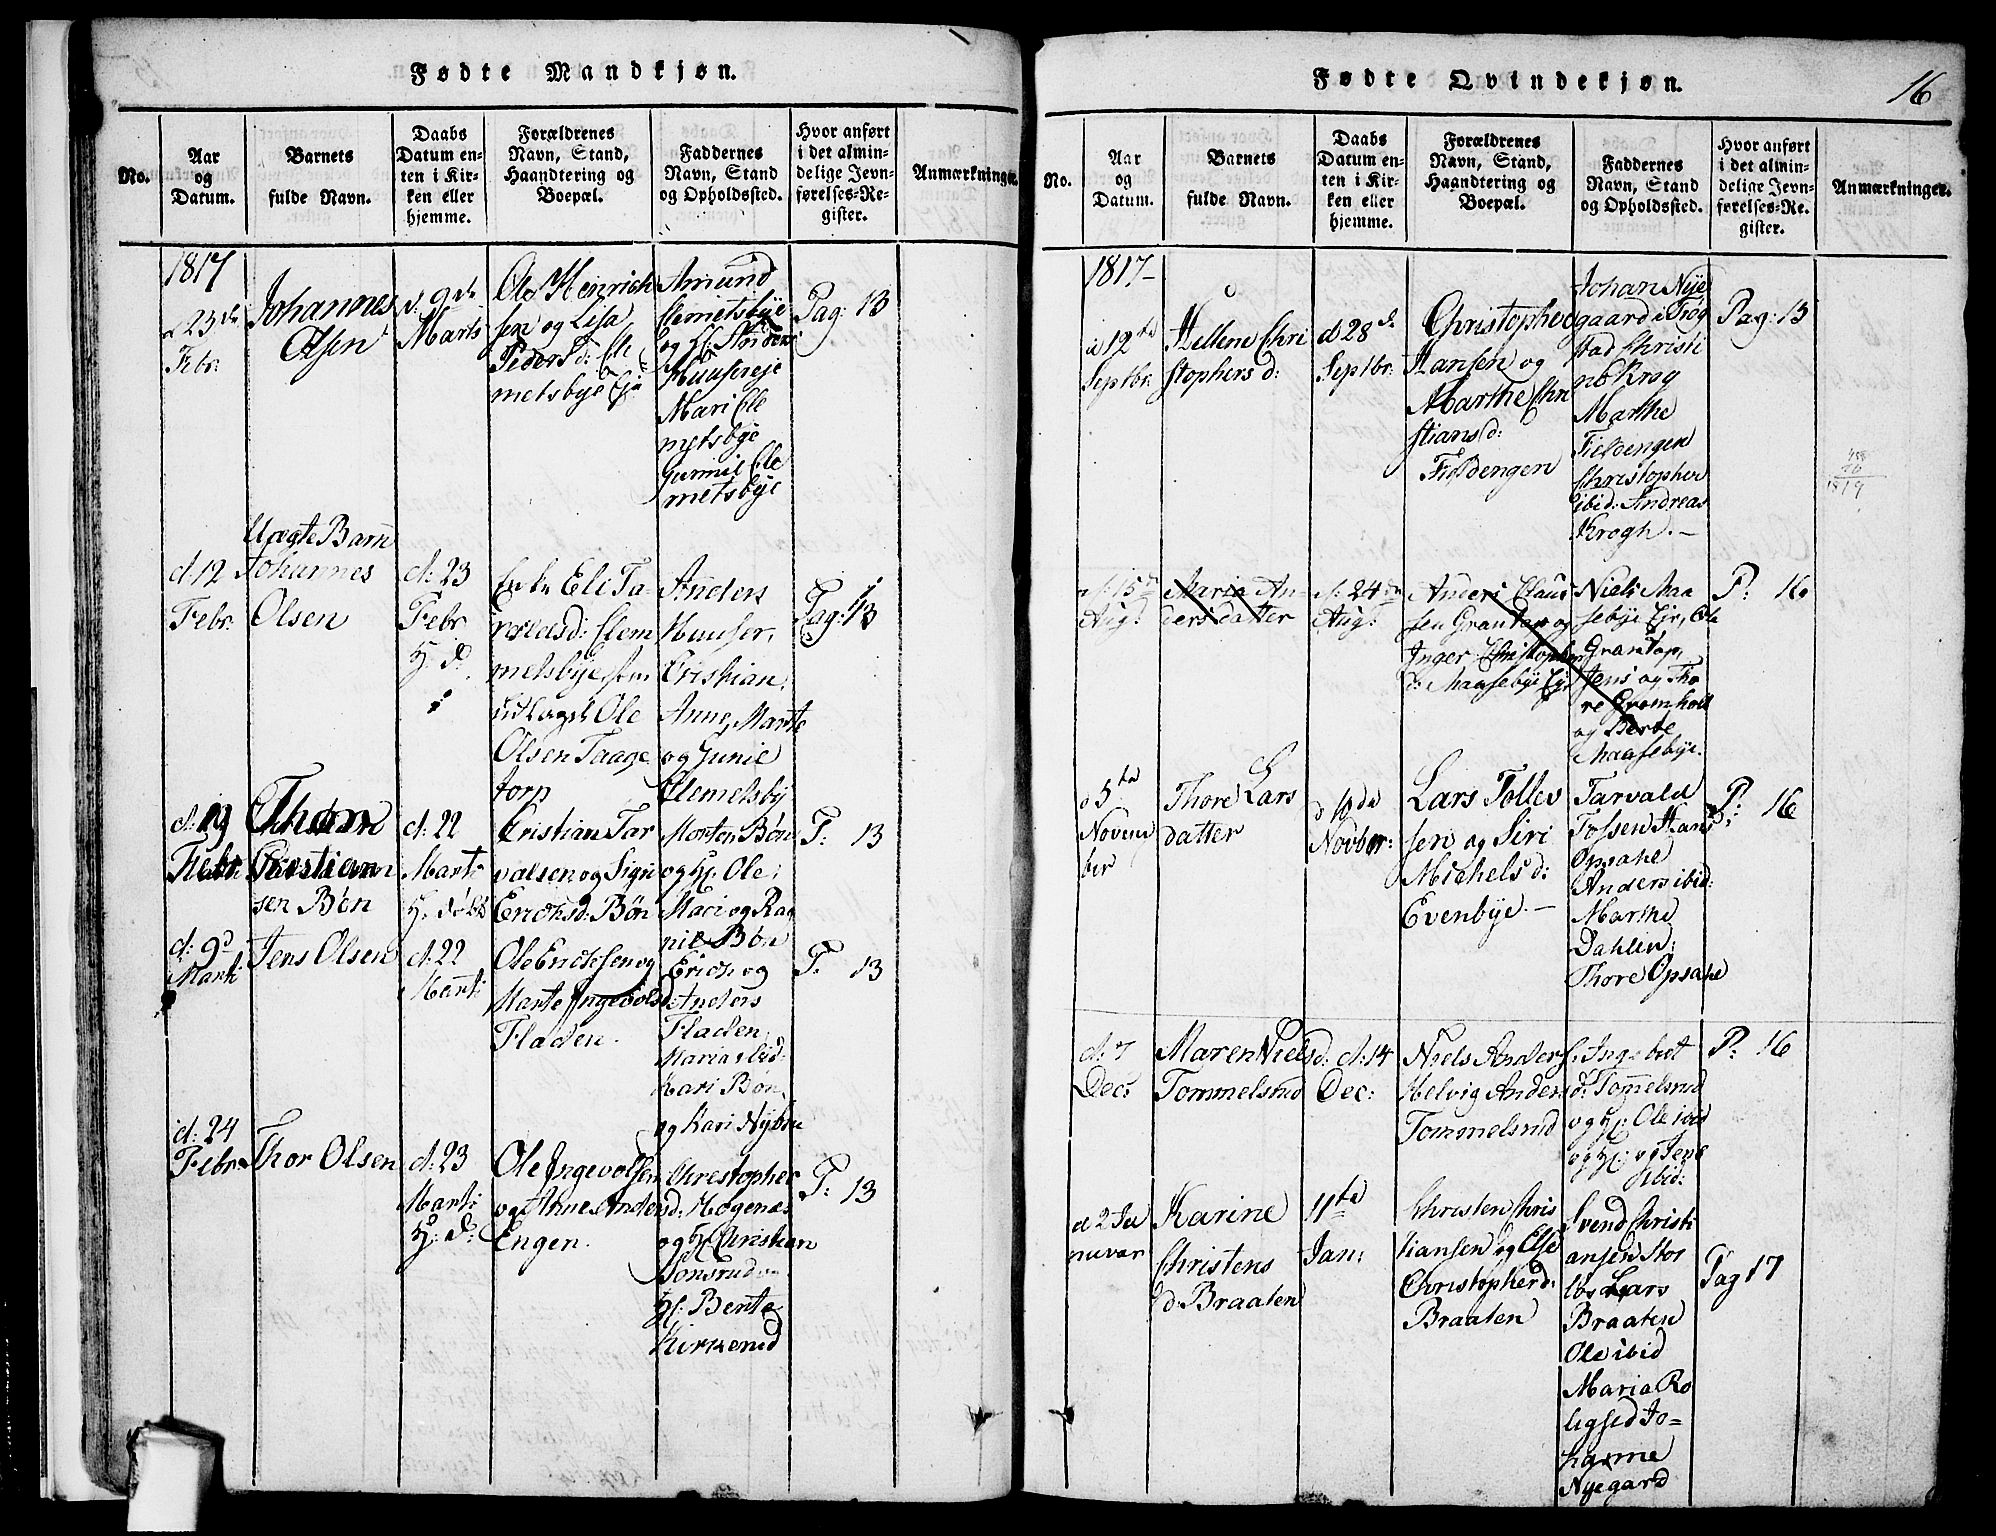 Fødte Mandkjøn.
No.
Aar
og
Datum.
Barnets
fulde Navn.
Daabs
Datum en-
ten i Kir-
ken eller
hjemme.
Forældrenes
Navn, Stand,
Haandtering og
Boepæl.
Faddernes
Navn, Stand
og Opholdssted.
Hvor anført
i det almin-
delige Jevn-
førelses-Re-
gister.
Anmærkninger.
1817
d 23de
Febr:
Johannes
Olsen
d. 9de
Marts
Ole Henrich
sen og Lisa
Peders d: Cle
metsbye Ejr
Amund
Clemetsbye
og
Huusereje
Mari Cle
metsbye
Gunnil Cle
metsbye
Pag: 13
Uægte Barn
d: 12
Febr:
Johannes
Olsen
d: 23
Febr
H. d.
Enke Eli Ta-
rvalds d: Clem
metsbye
udlagt Ole
Olsen Taage
torp
Anders
Huuser,
Cristian,
Anne, Marte
og Gunil
Clemetsby
Pag: 13
d: 19
Febr:
Thom
Cristian
sen Bøn
d: 22
Mart:
H. døbt
Cristian Tar
valsen og Signi
Erichs d: Bøn
Morten Bøn
og Hj. Ole,
Mari og Rag
nil Bøn
P: 13
d: 9d
Mart:
Jens Olsen
d: 22
Mart:
Ole Erichsen og
Marte Ingevolsd:
Fladen.
Erich og
Anders
Fladen,
Maria ibid
Kari Bøn,
og Kari Nybru
P. 13
d: 24
Febr:
Thor Olsen
d: 23
Mart:
H: d:
Ole Ingevolsen
og Anne Anders d:
Engen.
Chrestopher
Høgenæs
og Hj. Christian
Sonsrud og
Hj. Bente
Kirkerud
P: 13
Fødte Qvindekjøn.
16
No.
Aar
og
Datum.
Barnets
fulde Navn.
Daabs
Datum en-
ten i Kir-
ken eller
hjemme.
Forældrenes
Navn, Stand,
Haandtering og
Boepæl.
Faddernes
Navn, Stand
og Opholdssted.
Hvor anført
i det almin-
delige Jevn-
førelses-Re-
gister.
Anmærkninger.
1817-
d 12te
Septbr:
Hellene Chri
stophers d:
d 28d.
Septbr:
Christopher
Hansen og
Marthe Chri
stians d:
Fieldengen
Johan Nye
gaard i Trøg
stad Christi
ne Krog
Marthe
Fieldengen
Christopher
ibid: Andreas
Krogh. -
Pag: 15
d. 15de
Aug:
Maria An-
ders datter
d. 24de
Aug:
Anders Claus
sen Grantop og
Inger Christopher
d: Maasebye Ejr
Niels Maa
sebye Ejr, Ole
Grantop,
Jens og Tho
re Gromholt
og Berte
Maasebye.
P: 16
d 5te
Novem
ber
Thore Lars
datter
d 10de
Novbr:
Lars Tollev
sen og Siri
Michels d:
Evenbye. -
Tarvald
Fossen Hans
Opsahe
Anders ibid:
Marthe
Dahlin:
Thore Opsahe
P: 16
d: 7
Dec:
Maren Niels d:
Tommelsrud
d: 14
Dec:
Niels Anders
Helvig Anders d:
Tommelsrud
Ingebret
Tommelsrud
og Hj: Ole ibid
og Hj: og Jens
ibid:
P: 16
d 2 Ja
nuvar
Karine
Christens
d: Braaten
11te
Jan:
Christen Chris
tiansen og Else
Christopher d:
Braaten
Svend Christi
ansen Stor
Lars
Braaten
Ole ibid
Maria Ro
ligsed Jo-
hanne
Nyegard
Pag 17